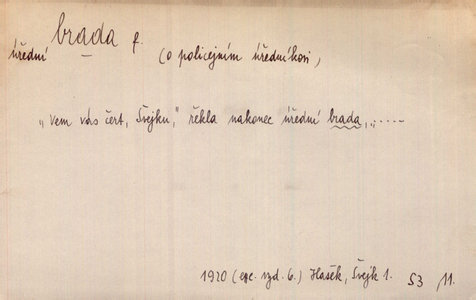 brada f.
úřední (o policejním úředníkovi)
„Vem vás čert, Švejku," řekla nakonec úřední brada, „.....
1920 (exc. vyd. 6.) Hašek, Švejk 1. 53 /11.